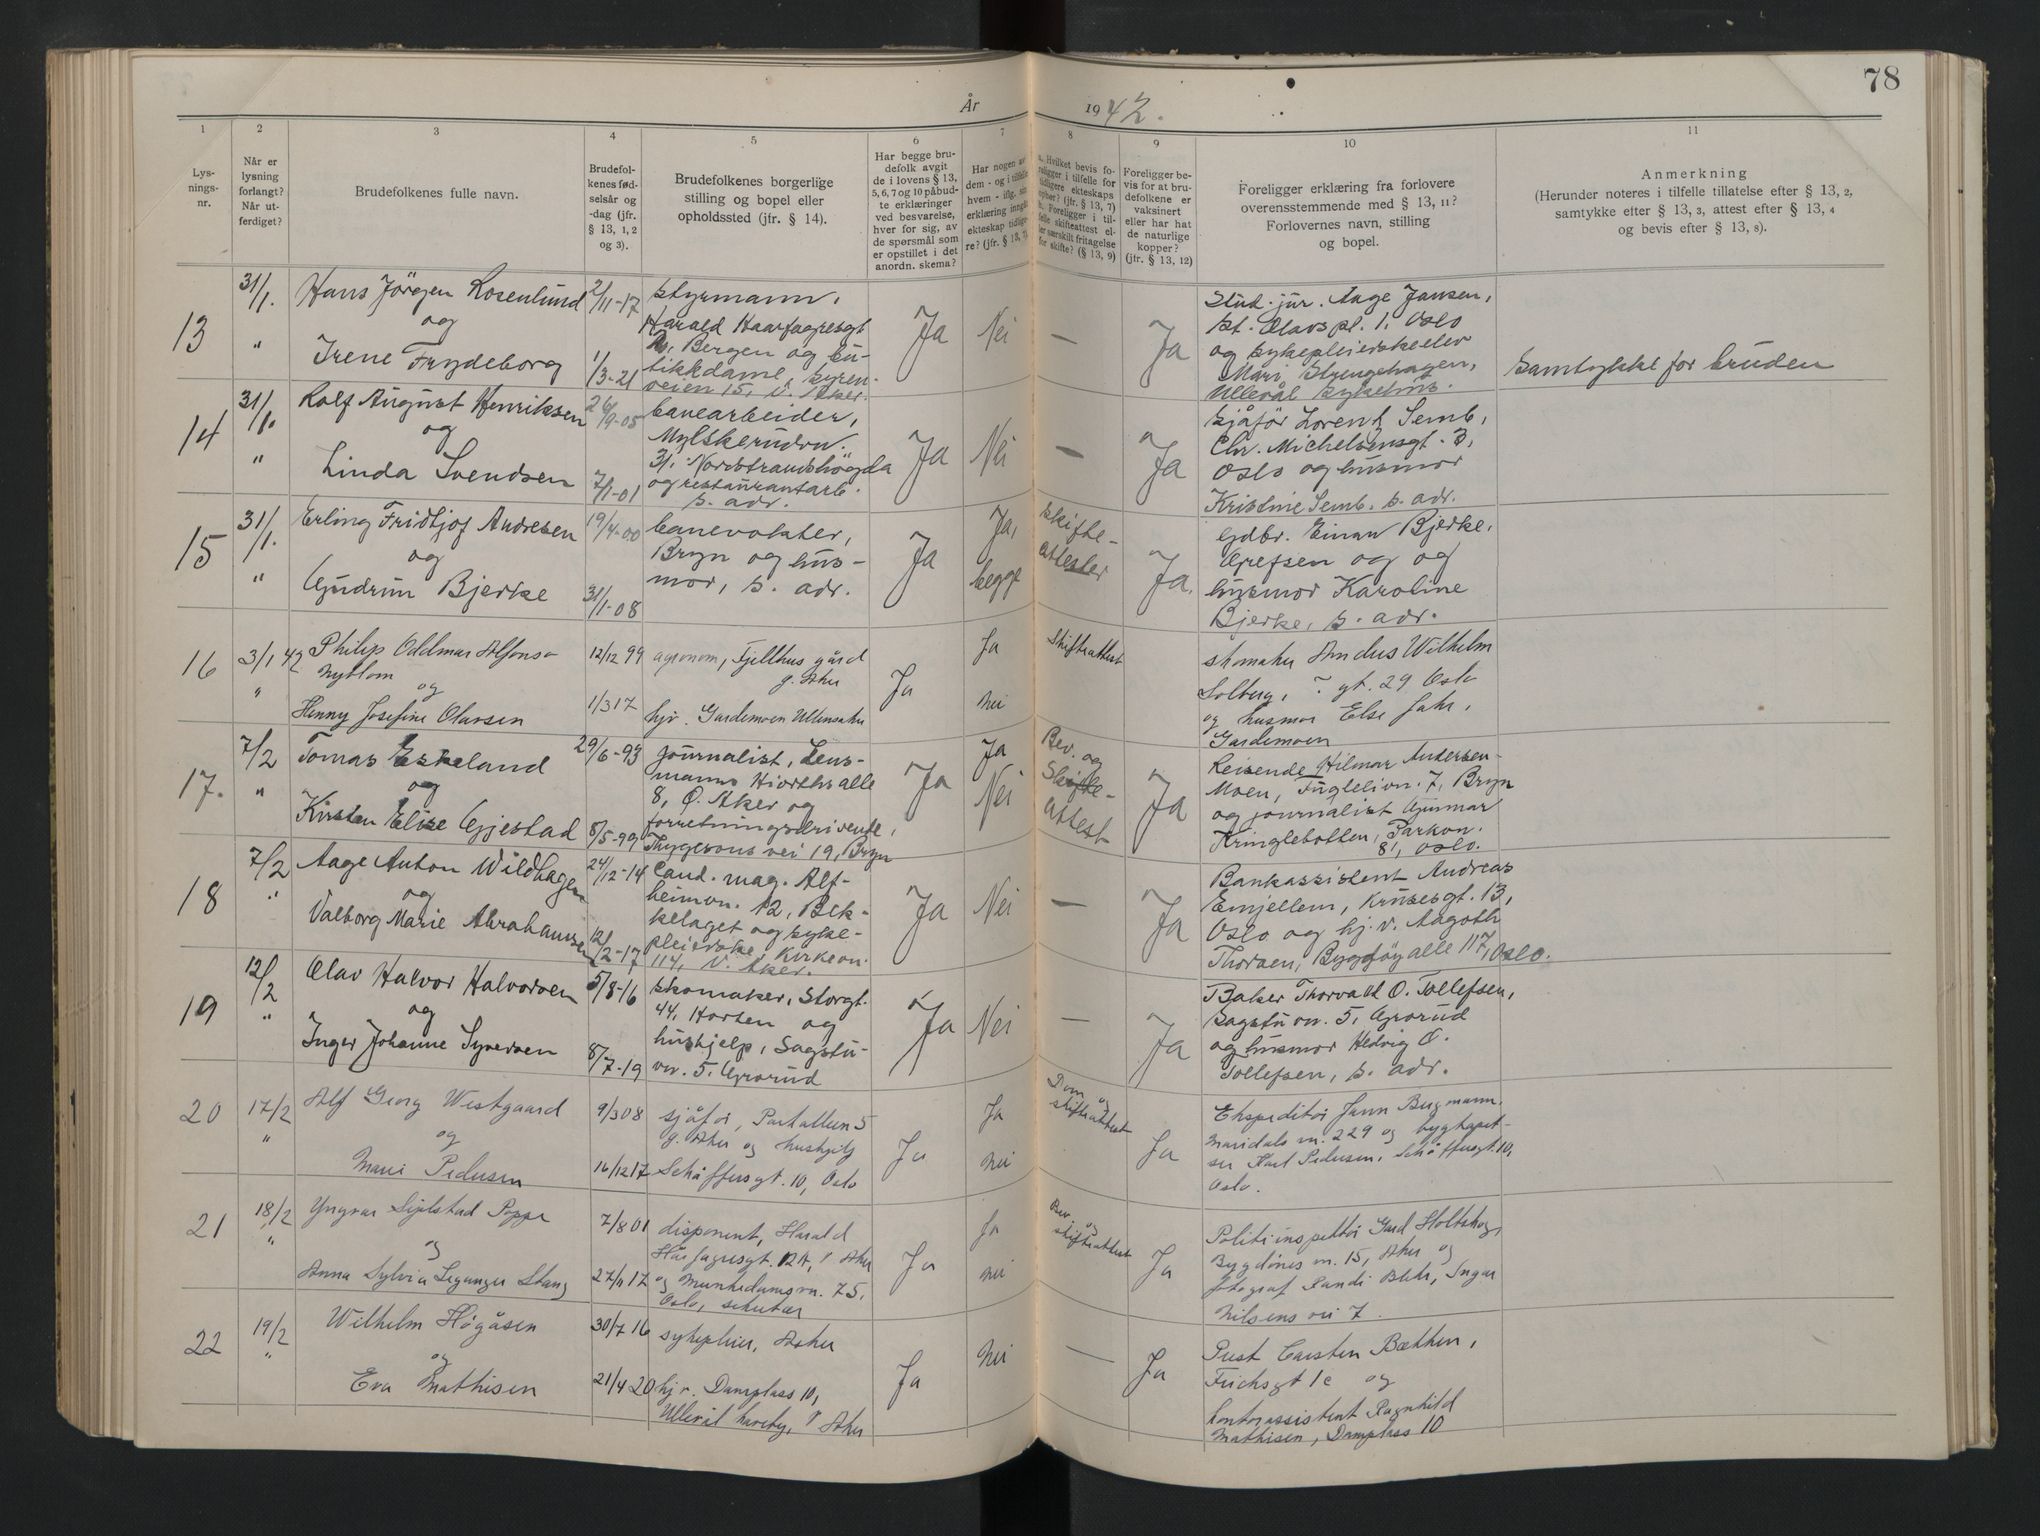 78
År 1942.
1
2
3
4
5
6
7
8
9
10
11
Lys-
nings-
nr.
Når er
lysning
forlangt?
Når ut-
ferdiget?
Brudefolkenes fulle navn.
Brudefol-
kenes fød-
selsår og
-dag (jfr.
§ 13, 1, 2
og 3).
Brudefolkenes borgerlige
stilling og bopel eller
opholdssted (jfr. § 14).
Har begge bru-
defolk avgit
de i lovens § 13,
5, 6, 7 og 10 påbud-
te erklæringer
ved besvarelse,
hver for sig, av
de spørsmål som
er opstillet i det
anordn. skema?
Har nogen av
dem - og i tilfelle
hvem - iflg. sin
erklæring inngått
ekteskap tidlige-
re? (jfr. § 13, 7).
a. Hvilket bevis fo-
religger i tilfelle for
tidligere ekteskaps
ophør? (jfr. § 13, 7)
b. Foreligger i til-
felle skifteattest el-
ler særskilt fritagelse
for skifte? (§ 13, 9)
Foreligger be-
vis for at bru-
defolkene er
vaksinert
eller har hat
de naturlige
kopper?
(jfr. § 13, 12)
Foreligger erklæring fra forlovere
overensstemmende med § 13, 11?
Forlovernes navn, stilling
og bopel.
Anmerkning
(Herunder noteres i tilfelle tillatelse efter § 13, 2,
samtykke efter § 13, 3, attest efter § 13, 4
og bevis efter § 13, 8).
13
31/1.
"
Hans Jörgen Rosenlund
og
Irene Frydeborg
2/11-17
1/3-21
styrmann,
Harald Haarfagresgt
Bergen og bu-
tikkdame, syren-
veien 15, V. Aker.
Ja
Nei
—
Ja
Stud. jur. Aage Jansen,
st. Olavs pl. 1, Oslo
og sykepleierskeelev
Mari Strengehagen,
Ullevål sykehus.
Samtykke for bruden
14
31/1.
"
Rolf August Henriksen
og
Linda Svendsen
26/9-05
7/1-01
banearbeider,
Mylskerudvn.
31, Nordstrandshögda
og restaurantarb.
s. adr.
Ja
Nei
—
Ja
Sjåför Lorentz Semb,
Chr. Michelsensgt. 3,
Oslo og husmor
Kristine Semb. s. adr.
15
31/1.
"
Erling Fridtjof Andresen
og
Gudrun Bjerke
19/4-00
31/1-08
banevokter,
Bryn og hus-
mor, s. adr.
Ja
Ja,
begge
skifte-
attester
Ja.
Gdbr. Einar Bjerke,
Grefsen og og
husmor Karoline
Bjerke, s. adr.
16
3/1 42
"
Philip Oddmar Alfonso
Nyblom
og
Henny Josefine Olavsen
12/12 99
1/3 17
agronom, Fjellhus gård
Ø. Aker
hjv. Gardemoen Ullensaker
Ja
Ja
nei
Skifteattest
skomaker Andus Wilhelm
Solberg, ? gt. 29 Oslo
og husmor Else Jahr,
Gardemoen
17.
7/2
"
Tomas Eskeland
og
Kirsten Elise Gjestad
29/6-93
8/5-99
journalist, Lens-
manns Hiorths alle
8, Ø. Aker og
forretningsdrivende,
Thygesons vei 19, Bryn
Ja
Ja
Nei
Bev. og
Skifte-
attest
Ja
Reisende Hilmar Andersen-
Moen, Fuglelivn. 7, Bryn
og journalist Gunnar
Kringlebotten, Parkvn.
81, Oslo.
18
7/2
"
Aage Anton Wildhagen
og
Valborg Marie Abrahamsen
24/12-14
12/2-17
Cand. mag. Alf-
heimvn. 12, Bek-
kelaget og syke-
pleierske, Kirkevn.
114, V. Aker.
Ja
Nei
—
Ja
Bankassistent Andreas
Emjellem, Krusesgt. 13,
Oslo og hj. v. Aagoth
Thorsen, Bygdøy alle 117, Oslo.
19
12/2
"
Olav Halvor Halvorsen
og
Inger Johanne Syversen
5/8-16
8/7-19
skomaker, Storgt.
44, Horten og
hushjelp, Sagstu-
vn. 5, Grorud
Ja
Nei
—
Ja
Baker Thorvald O. Tollefsen,
Sagstuvn. 5, Grorud
og husmor Hedvig O.
Tollefsen, s. adr.
20
17/2
"
Alf Georg Westgaard
og
Marie Pedersen
9/3 08
16/12 17
sjåfør,
Ø. Aker og hushjelp
Schäffersgt. 10, Oslo
Ja
Ja
nei
Dom og
skifteattest
Ja
Ekspeditør Bergmann,
Maridals vn. 229 og
Karl Pedersen, Schäffersgt. 10,
Oslo.
21
18/2
"
Yngvar Poppe
og
Anna Sylvia Leganger Stang
7/8 01
27/11 17
disponent, Harald
Hårfagresgt. 12A, V Aker
og Munkedamsvn. 75,
Oslo, sekretær
Ja
Ja
nei
Bev. og
skifteattest
Ja
Politiinspektør Gard Holtskog,
Bygdønes vn. 15, Aker og
fotograf Randi Ingar
Nilsens vei 7.
22
19/2
"
Wilhelm Høgåsen
og
Eva Mathisen
30/7 16
21/4 20
sykepleier, Asker
hjv. Damplass 10,
Ullevål haveby, V Aker
Ja
Nei
—
Ja
Prest Carsten Bækken,
Frichsgt 1c og
kontorassistent Ragnhild
Mathisen, Damplass 10